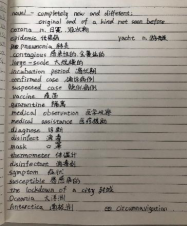 novel - completely new and different;
original and of a kind not seen before
corona n. 日冕, 冠状
epidemic 传染病 yacht n. 游艇
pneumonia 肺炎
contagious 感染性的
large-scale 大规模的
incubation period 潜伏期
confirmed case 确诊病例
suspected case 疑似病例
vaccine 疫苗
quarantine 隔离
medical observation 医学观察
medical assistance 医疗援助
diagnose 诊断
disinfect 消毒
mask 口罩
thermometer 体温计
disinfectant 消毒剂
symptom 症状
susceptible 易感的
the lockdown of a city 封城
Oceania 大洋洲
Antarctica 南极洲 circumnavigation